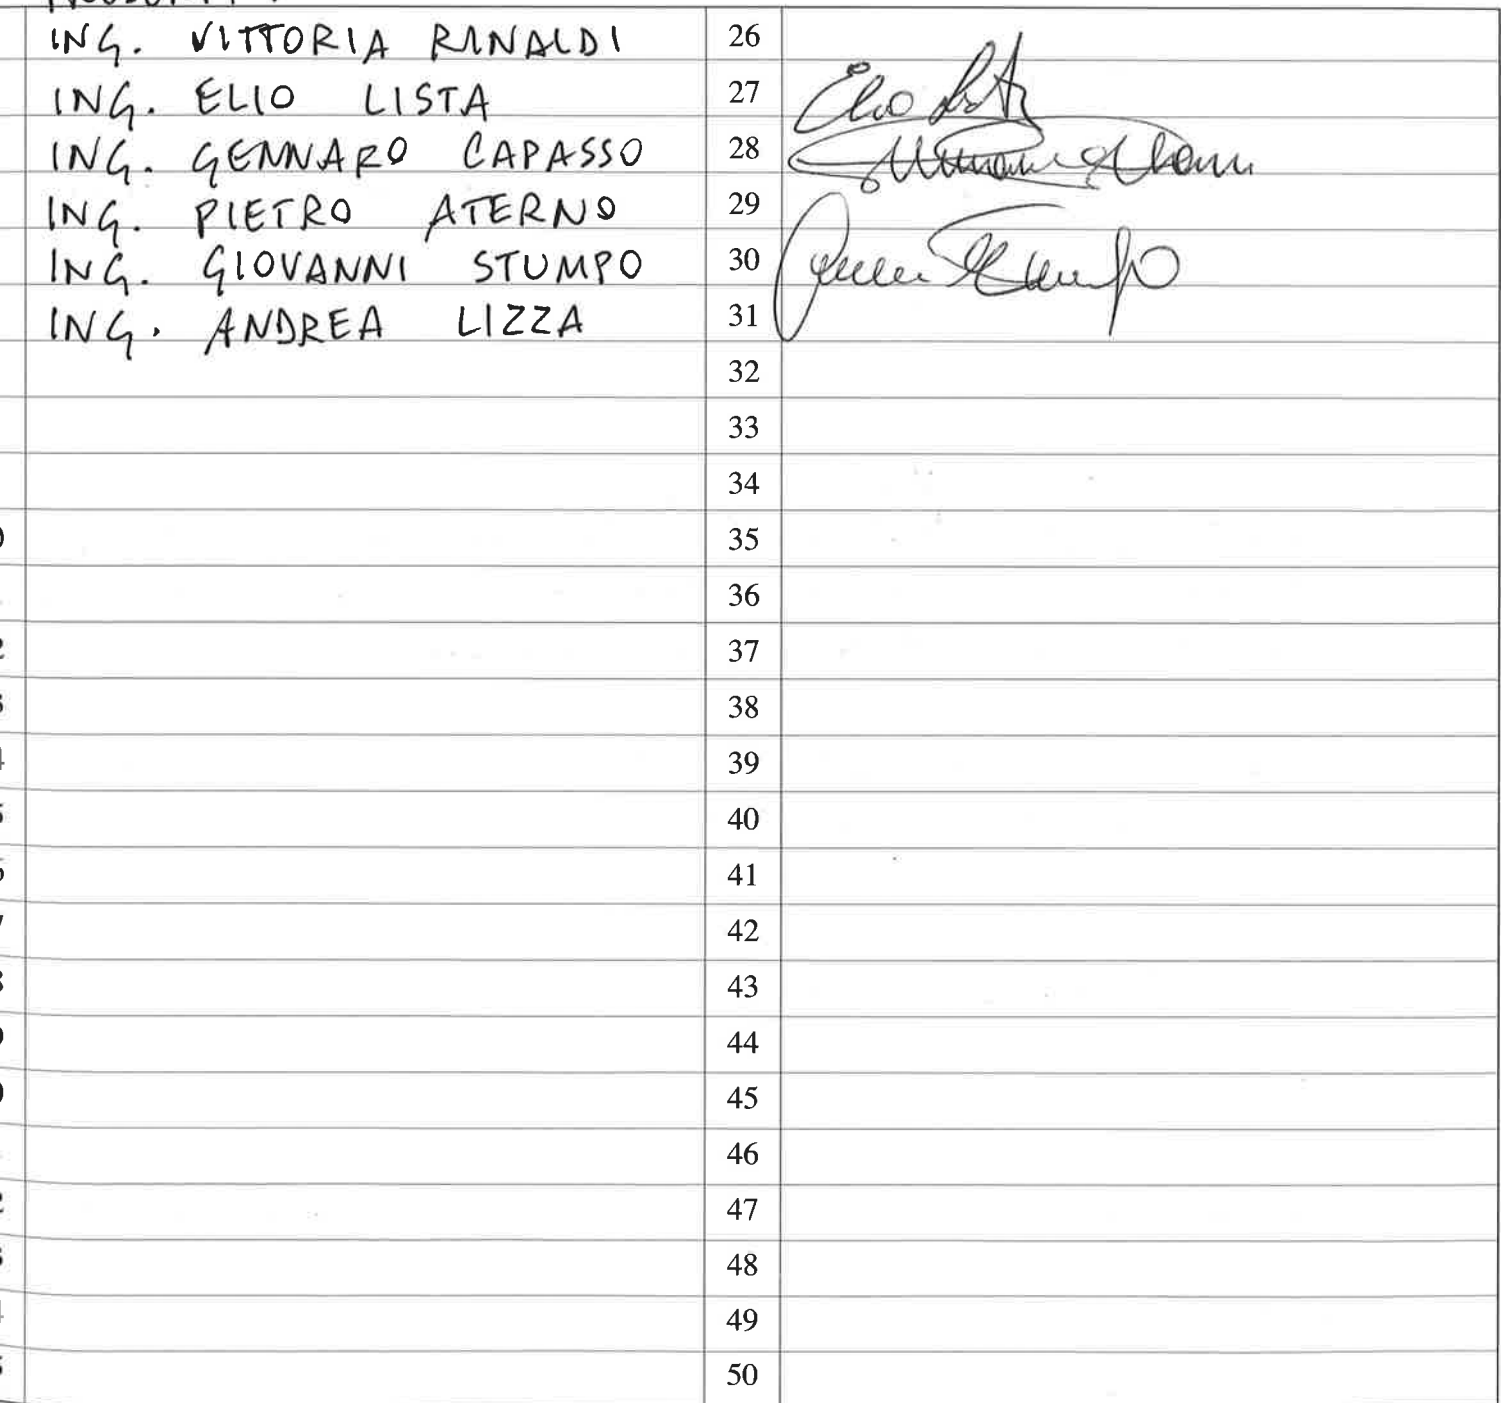 ING. VITTORIA RINALDI 26
ING. ELIO LISTA 27 Elio Lista
ING. GENNARO CAPASSO 28
ING. PIETRO ATERNO 29
ING. GIOVANNI STUMPO 30 Stumpo
ING. ANDREA LIZZA 31
32
33
34
35
36
37
38
39
40
41
42
43
44
45
46
47
48
49
50